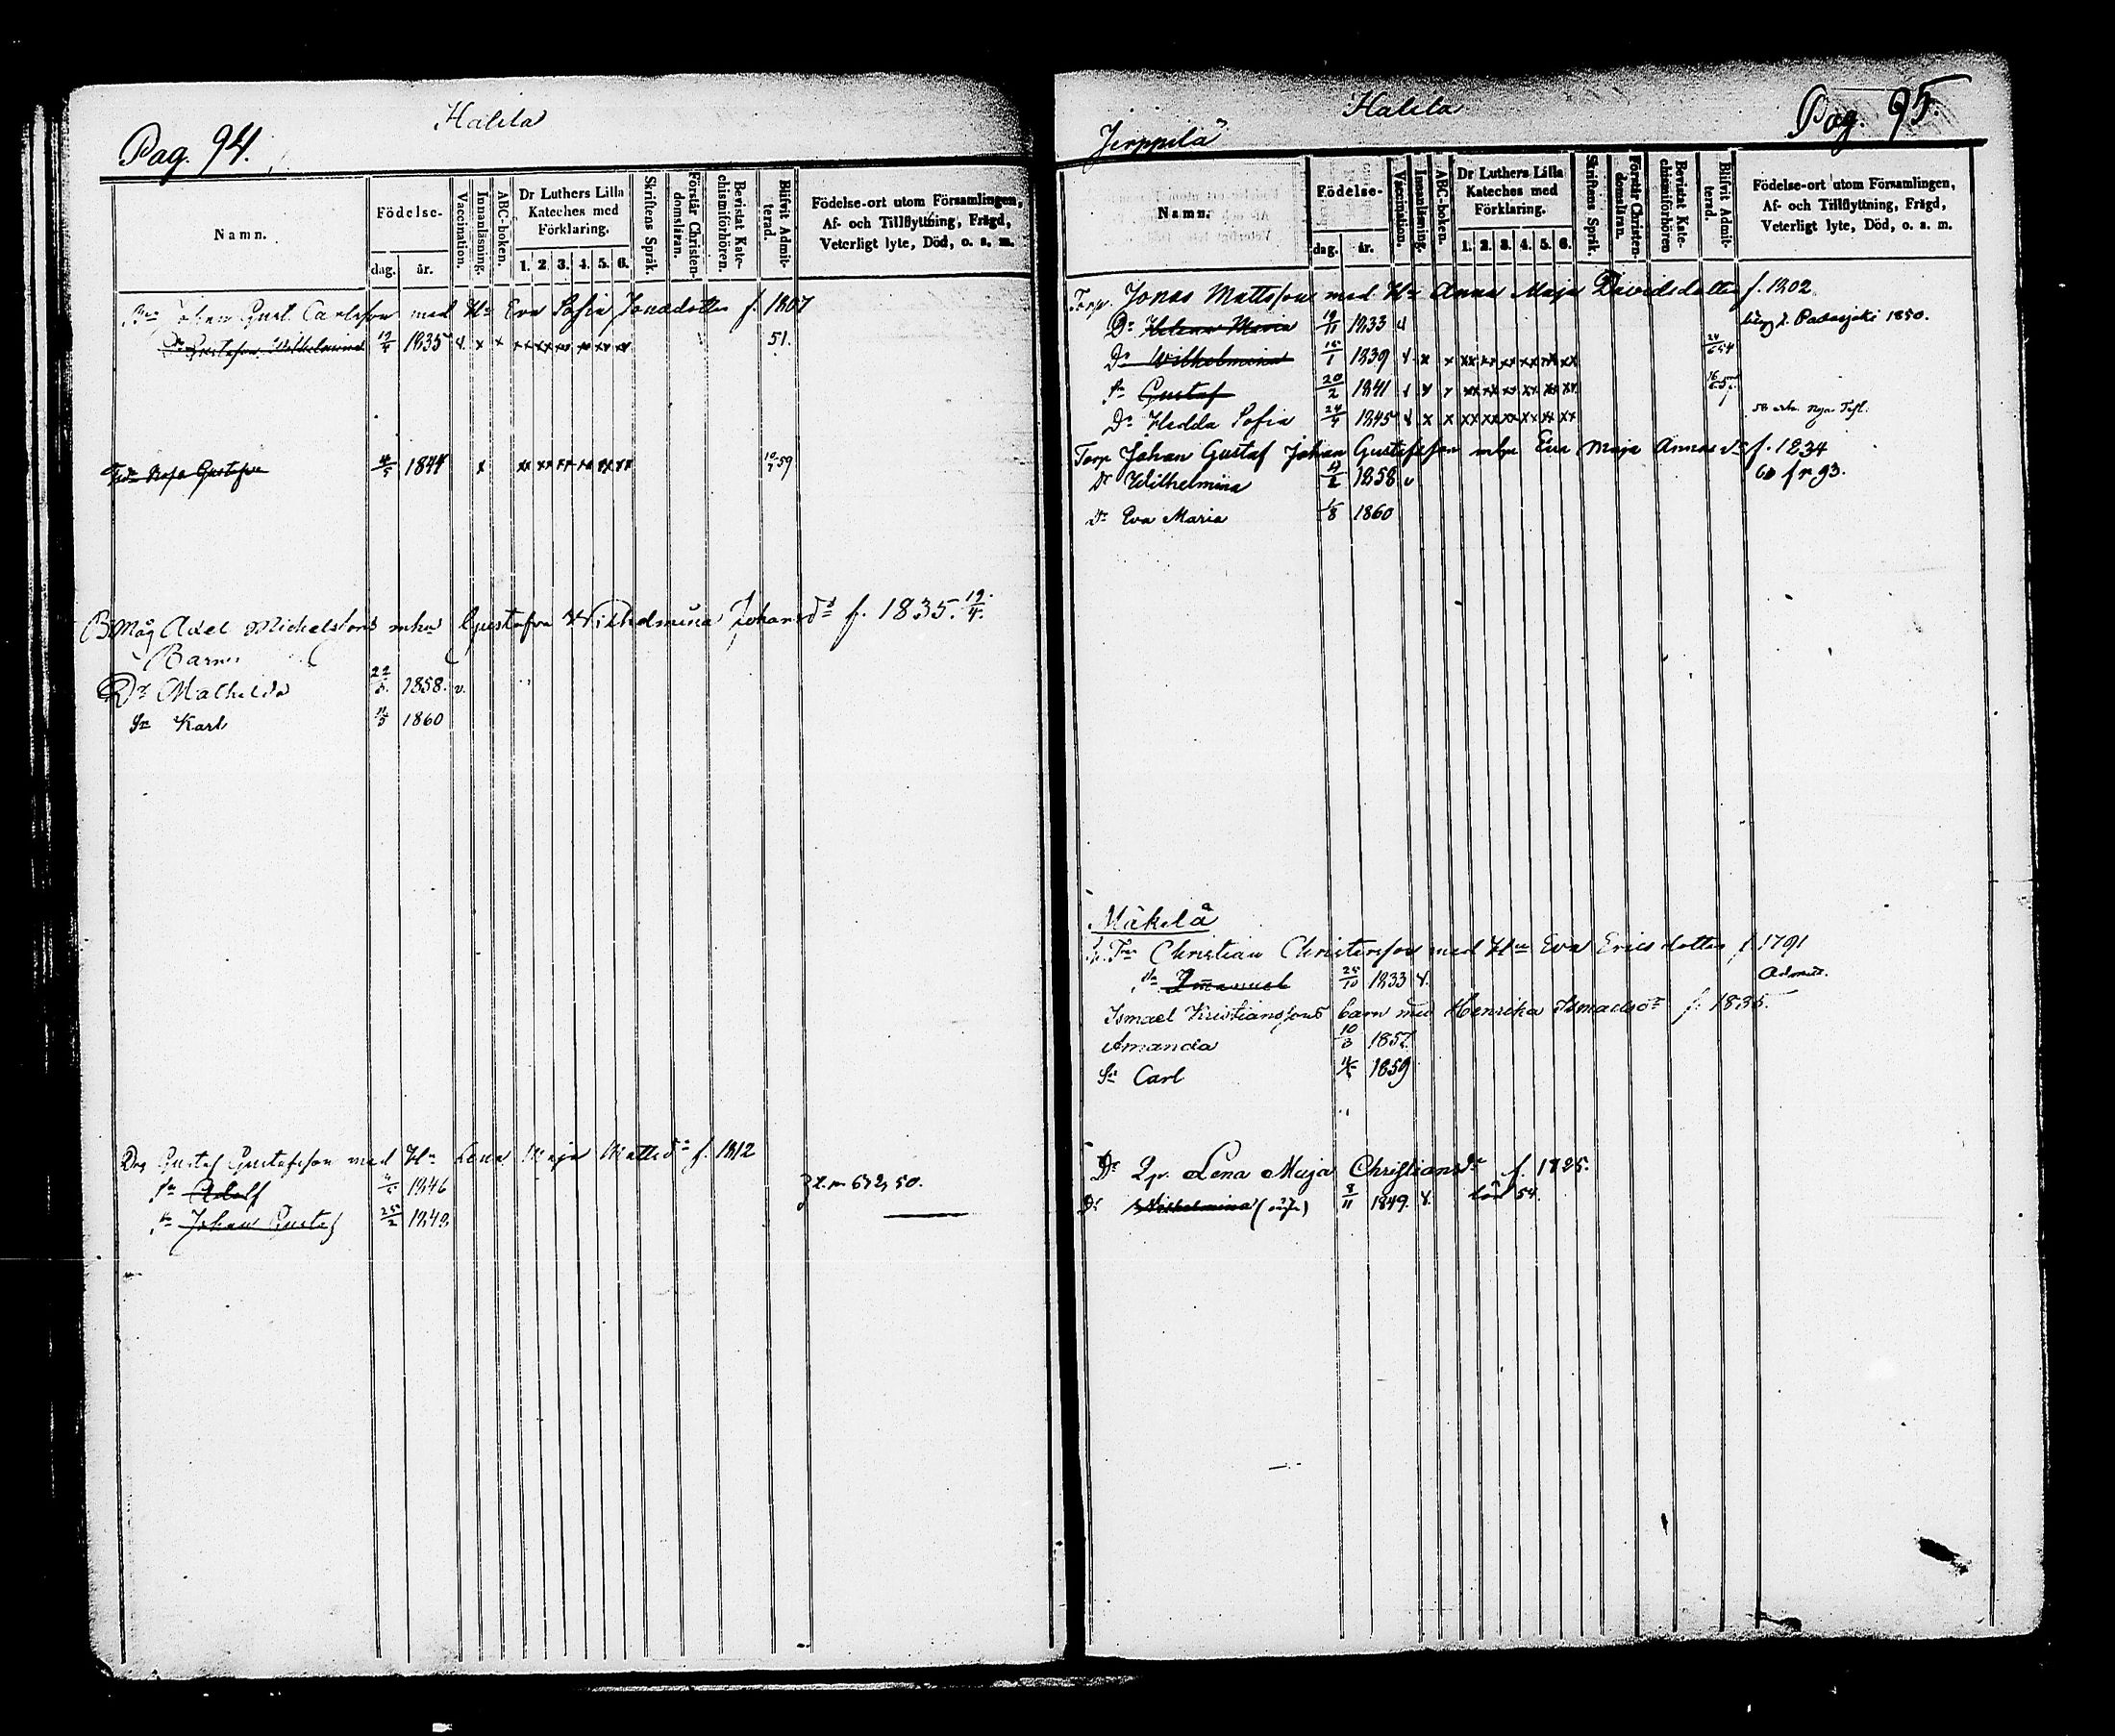 Halila
Pag. 94.
Namn.
Födelse-
dag.
år.
Vaccination.
Innanläsning.
ABC-boken.
Dr Luthers Lilla
Kateches med
Förklaring.
1. 2. 3. 4. 5. 6.
Skriftens Språk.
Förstår Christen-
domsläran.
Bevistat Kate-
chismiförhören.
Blifvit Admit-
terad.
Födelse-ort utom Församlingen,
Af- och Tillflyttning, Frägd,
Veterligt lyte, Död, o. s. m.
Johan Gust. Carlsson med Hu Eva Sofia Jonaedotter f. 1807
Dr Gustafva Wilhelmina 19/4 1835 v. x x xx xx xx xx xx xx 51.
Gustafva 4/5 1844 x xx xx xx xx xx xx 59
B Måg Axel Michelssons mhu Gustafva Wilhelmina Johansdr f. 1835. 19/4.
Barn
Dr Mathilda 22/5. 1858. v.
Sn Karl 1860
Gustaf Gustafsson med Hu Lena Maja Mattsdr f. 1812
Sn Adolf 1846
Sn Johan Gustaf 25/2 1849
Halila
Jerppilä
Pag. 95.
Namn.
Födelse-
dag.
år.
Vaccination.
Innanläsning.
ABC-boken.
Dr Luthers Lilla
Kateches med
Förklaring.
1. 2. 3. 4. 5. 6.
Skriftens Språk.
Förstår Christen-
domsläran.
Bevistat Kate-
chismiförhören
Blifvit Admit-
terad.
Födelse-ort utom Församlingen,
Af- och Tillflyttning, Frägd,
Veterligt lyte, Död, o. s. m.
Torp. Jonas Mattsson med Hu Anna Maja Davidsdotter f. 1802
Dr Helena Maria 19/11 1833 v Padasjoki 1850.
Dr Wilhelmina 1839 v x x xx xx xx xx xx xx
Sn Gustaf 20/2 1841 v x x xx xx xx xx xx xx
Dr Hedda Sofia 1845 v x x xx xx xx xx xx xx
Torp Johan Gustaf Johan Gustafsson mhu Eva Maja f. 1834
Dr Wilhelmina 1858 v 60 fr 93.
Dr Eva Maria 1/8 1860
Mäkelä
Christian Christersson med Hu Eva Ericsdotter f. 1791
Sn Emanuel 25/10 1833 v.
Ismael Kristianssons barn med Henrika f. 1835.
Amanda 10/3 1857
Sn Carl 1859
Dr Lena Maja Christiansdr f. 1825.
Dr Wilhelmina 8/11 1849. v. 54.